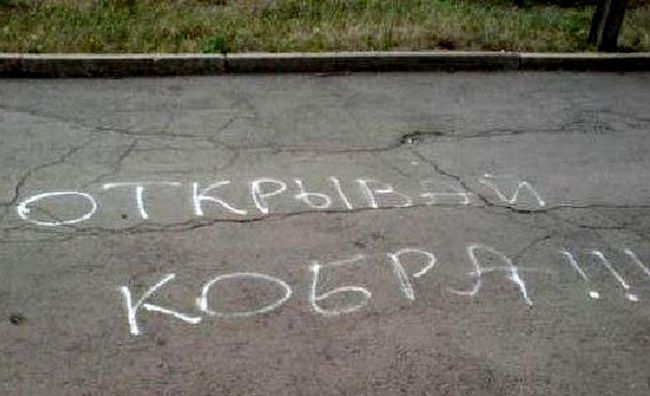 ОТКРЫВАЙ
КОБРА!!!